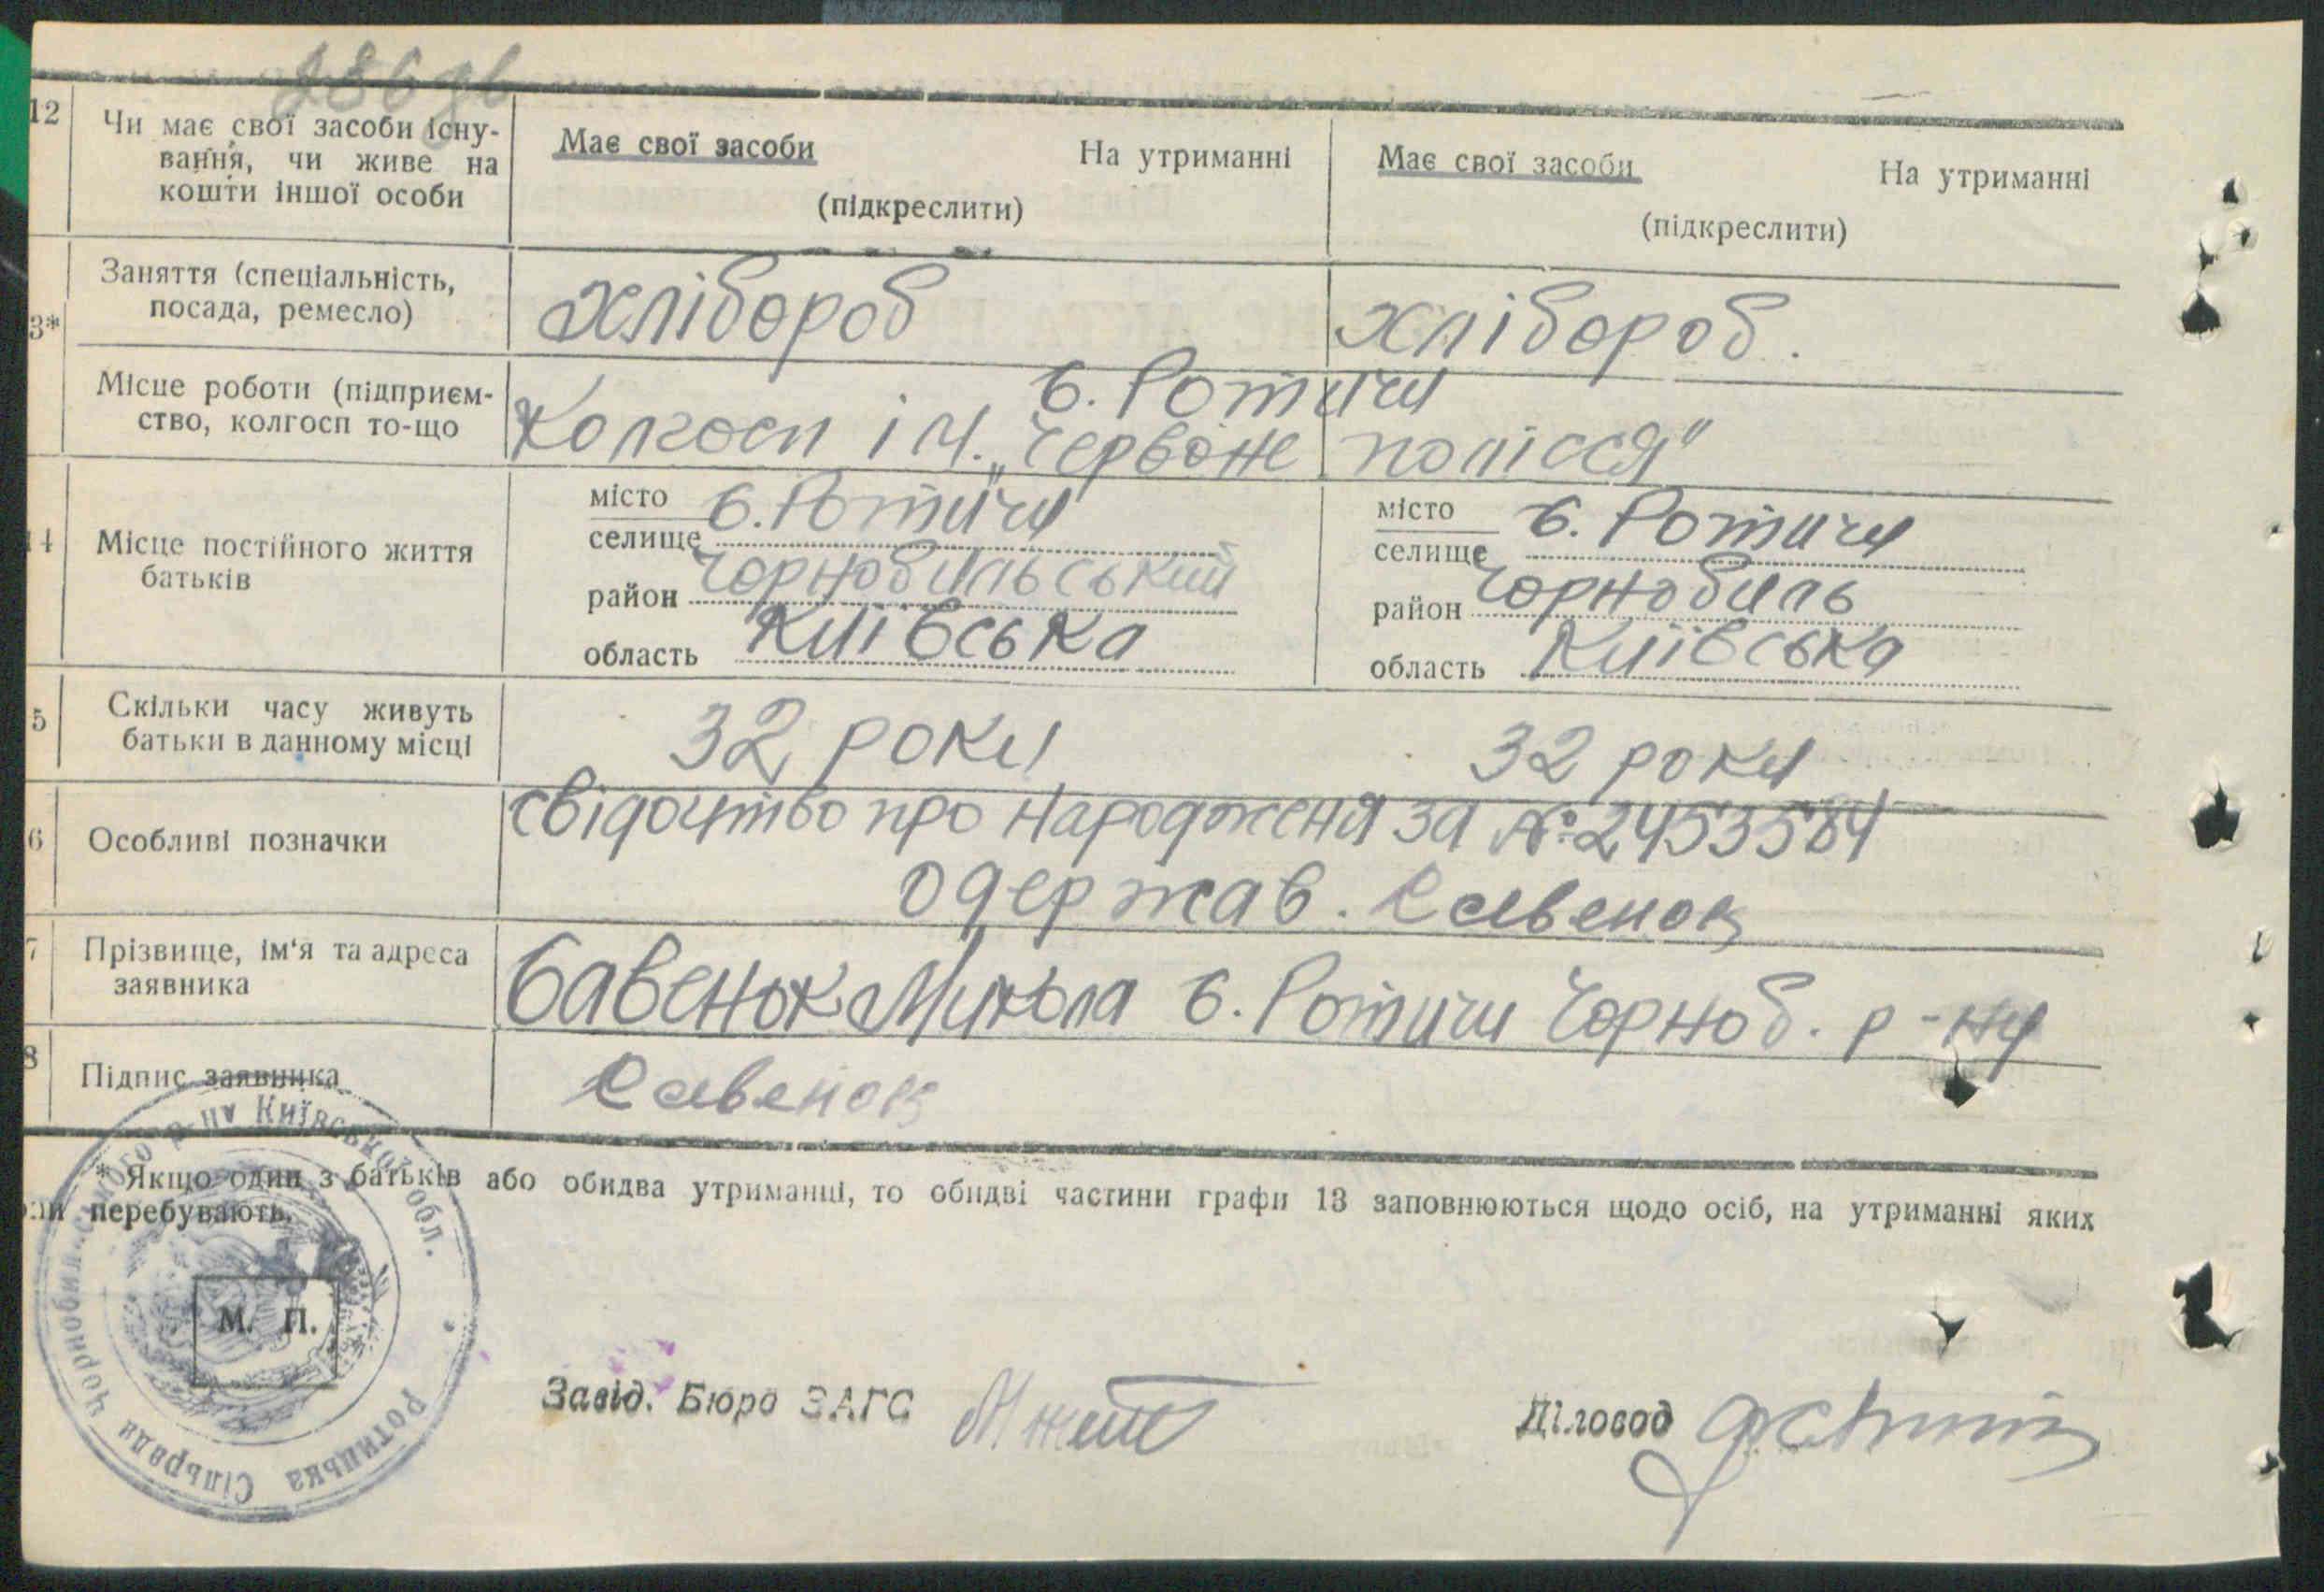 286 зв
12 Чи має свої засоби існу-
вання, чи живе на
кошти іншої особи
Має свої засоби На утриманні
(підкреслити)
Має свої засоби На утриманні
(підкреслити)
3* Заняття (спеціальність,
посада, ремесло)
Хлібороб
хлібороб.
Місце роботи (підприєм-
ство, колгосп то-що
с. Ротичи
Колгосп ім. „Червоне полісся"
14 Місце постійного життя
батьків
місто
селище с. Ротичи
район Чорнобильський
область Київська
місто
селище с. Ротичи
район Чорнобиль
область Київська
5 Скільки часу живуть
батьки в данному місці
32 роки
32 роки
6 Особливі позначки
свідоцтво про народження за № 2453584
одержав. Савенок
7 Прізвище, ім'я та адреса
заявника
Савенок Микола с. Ротичи Чорноб. р-ну
8 Підпис заявника
Савенок
* Якщо один з батьків або обидва утриманці, то обидві частини графи 13 заповнюються щодо осіб, на утриманні яких
перебувають.
М. П.
Ротицька Сільрада Чорнобильського р-на Київської обл.
Завід. Бюро ЗАГС
Діловод